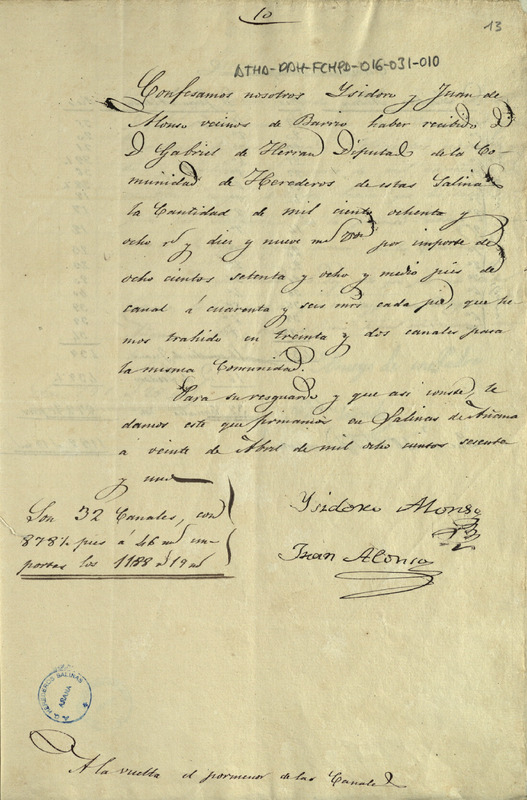 10
13
ATHA-DAH-FCHPD-016-031-010
Confesamos nosotros Ysidoro y Juan de
Alonso vecinos de Barrio haber recibido de
D Gabriel de Herran Diputado de la Co-
munidad de Herederos de estas Salinas
la Cantidad de mil ciento ochenta y
ocho rs y diez y nueve ms von por importe de
ocho cientos setenta y ocho y medio pies de
canal á cuarenta y seis mrs cada pie, que he
mos trahido en treinta y dos canales para
la misma Comunidad.
Para su resguardo y que asi conste, le
damos este que firmamos en Salinas de Añana
á veinte de Abril de mil ocho cientos sesenta
y uno
Son 32 Canales, con
878½ pies á 46 ms im-
portan los 1188 rs 19 ms
Ysidoro Alonso
Juan Alonso
SALINAS
AÑANA
A la vuelta el pormenor de las Canales